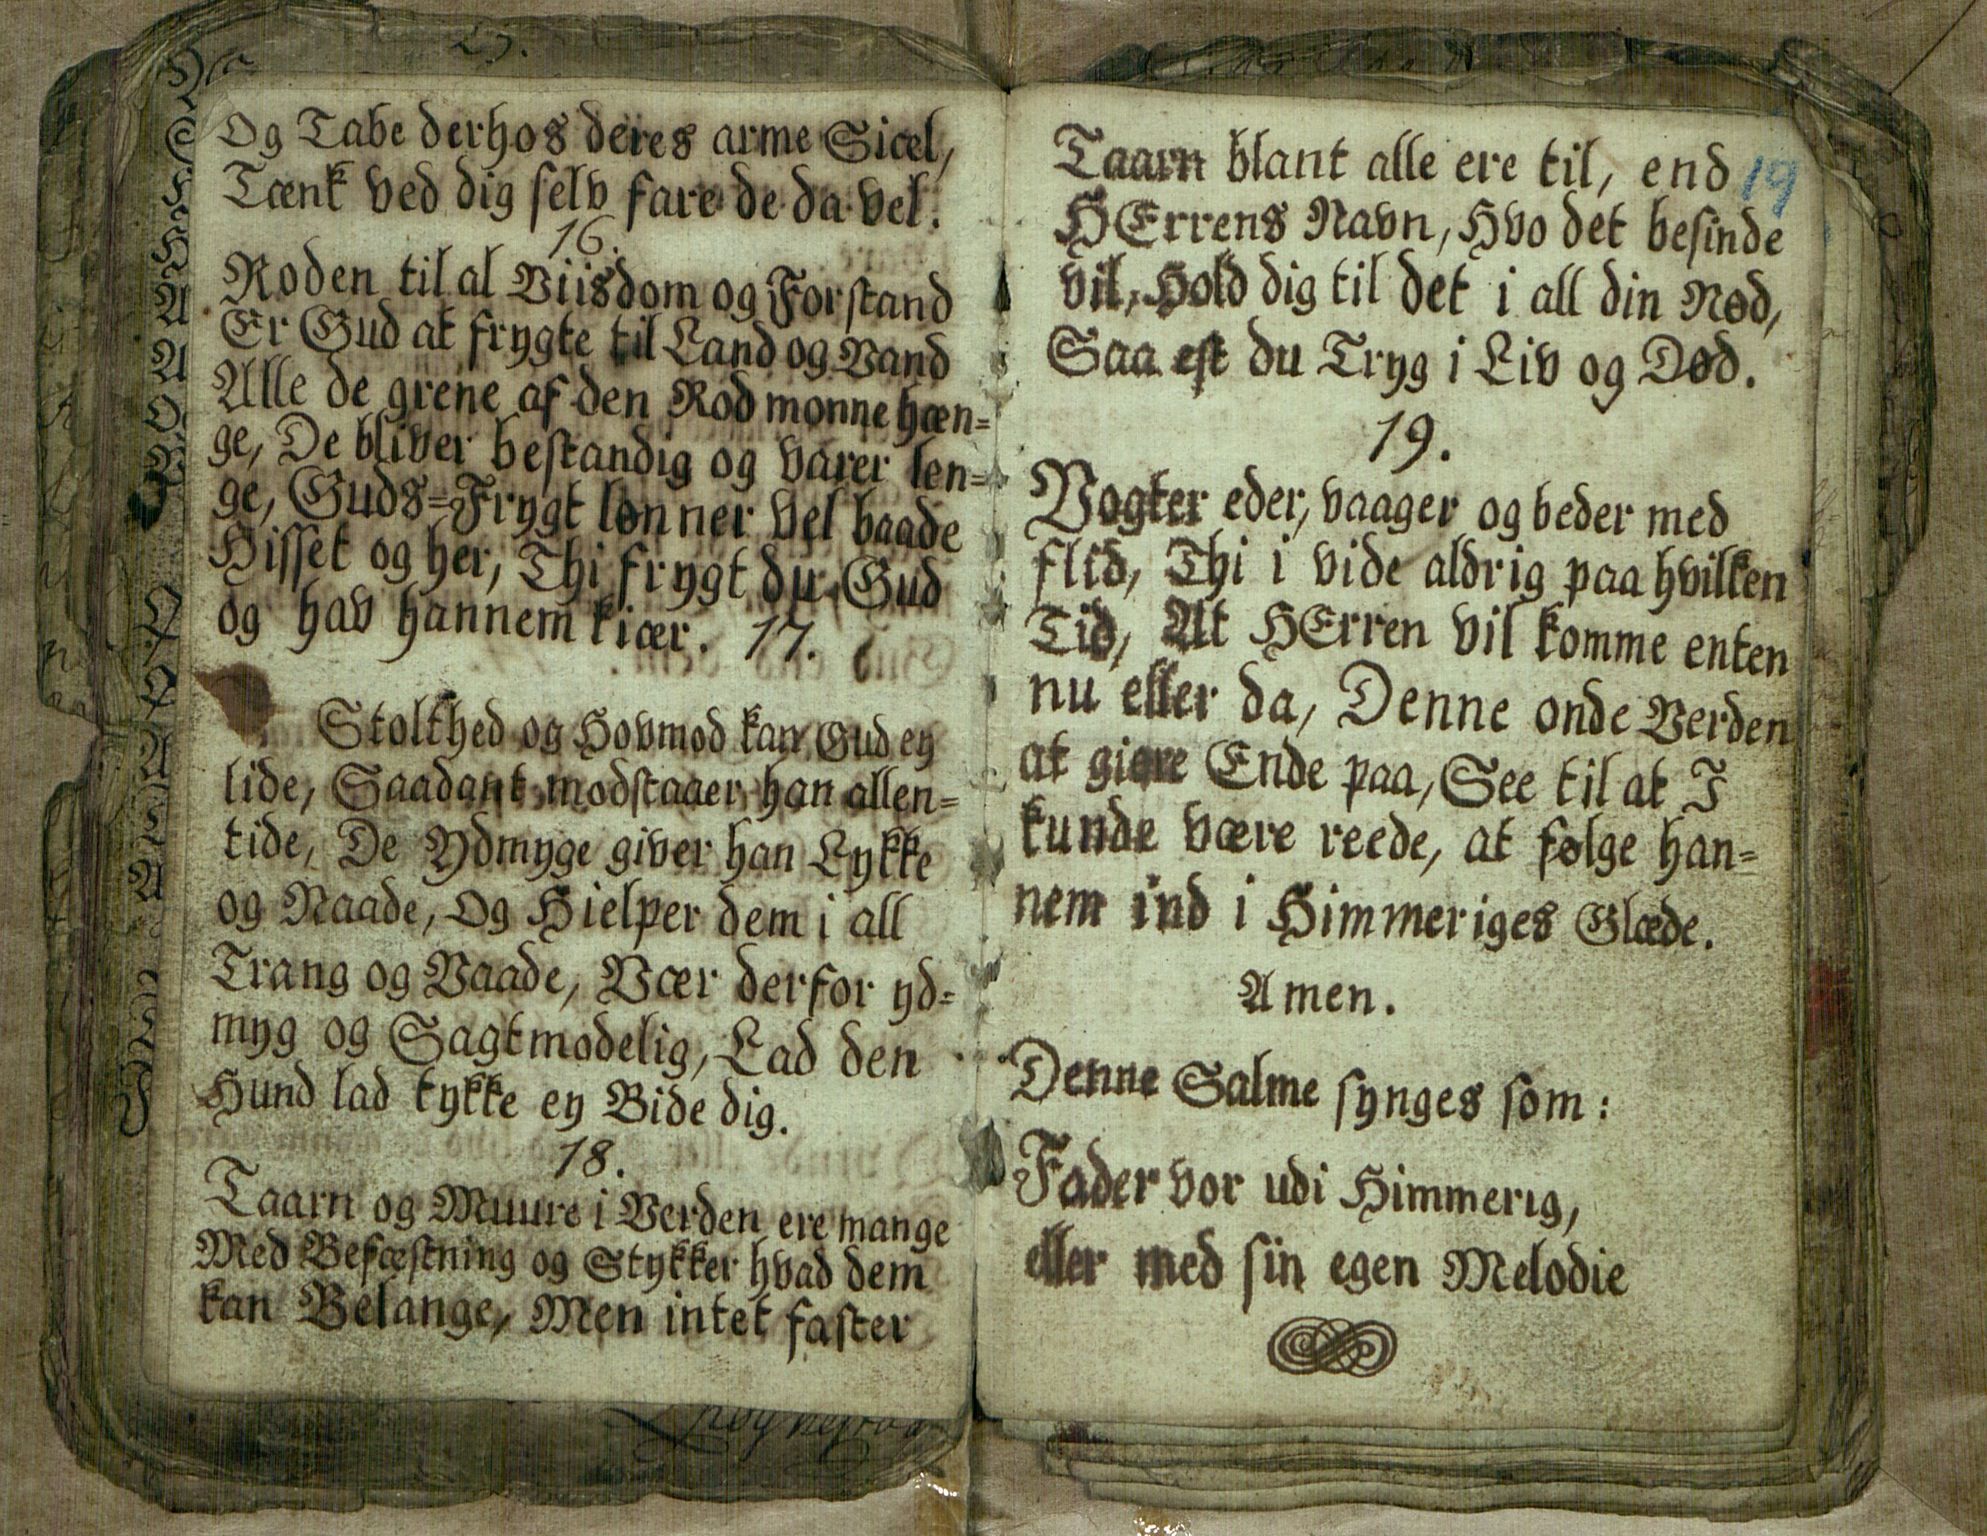 Og Tabe derhos deres arme Sicel,
Tænk ved dig selv fare de da vel.
16.
Roden til al Viisdom og Forstand
Er Gud at frygte til Land og Vand
Alle de grene af den Rod monne hæn=
ge, De bliver bestandig og varer len=
ge, Guds=Frygt lønner vel baade
Hisset og her, Thi frygt du Gud
og hav hannem kiær. 17.
Stolthed og Hovmod kan Gud ey
lide, Saadant modstaaer han allen=
tide, De Ydmyge giver han Lykke
og Naade, Og Hielper dem i all
Trang og Vaade, Vær derfor yd=
myg og Sagtmodelig, Lad den
Hund lad tykke ey Bide dig.
18.
Taarn og Muure i Verden ere mange
Med Befæstning og Stykker hvad dem
kan Belange, Men intet faster
19
Taarn blant alle ere til, end
HErrens Navn, Hvo det besinde
vil, Hold dig til det i all din Nød,
Saa est du Tryg i Liv og Død.
19.
Vogter eder, vaager og beder med
flid, Thi i vide aldrig paa hvilken
Tid, At HErren vil komme enten
nu eller da, Denne onde Verden
at giøre Ende paa, See til at I
kunde være reede, at følge han=
nem ind i Himmeriges Glæde.
Amen.
Denne Salme synges som:
Fader vor udi Himmerig,
eller med sin egen Melodie